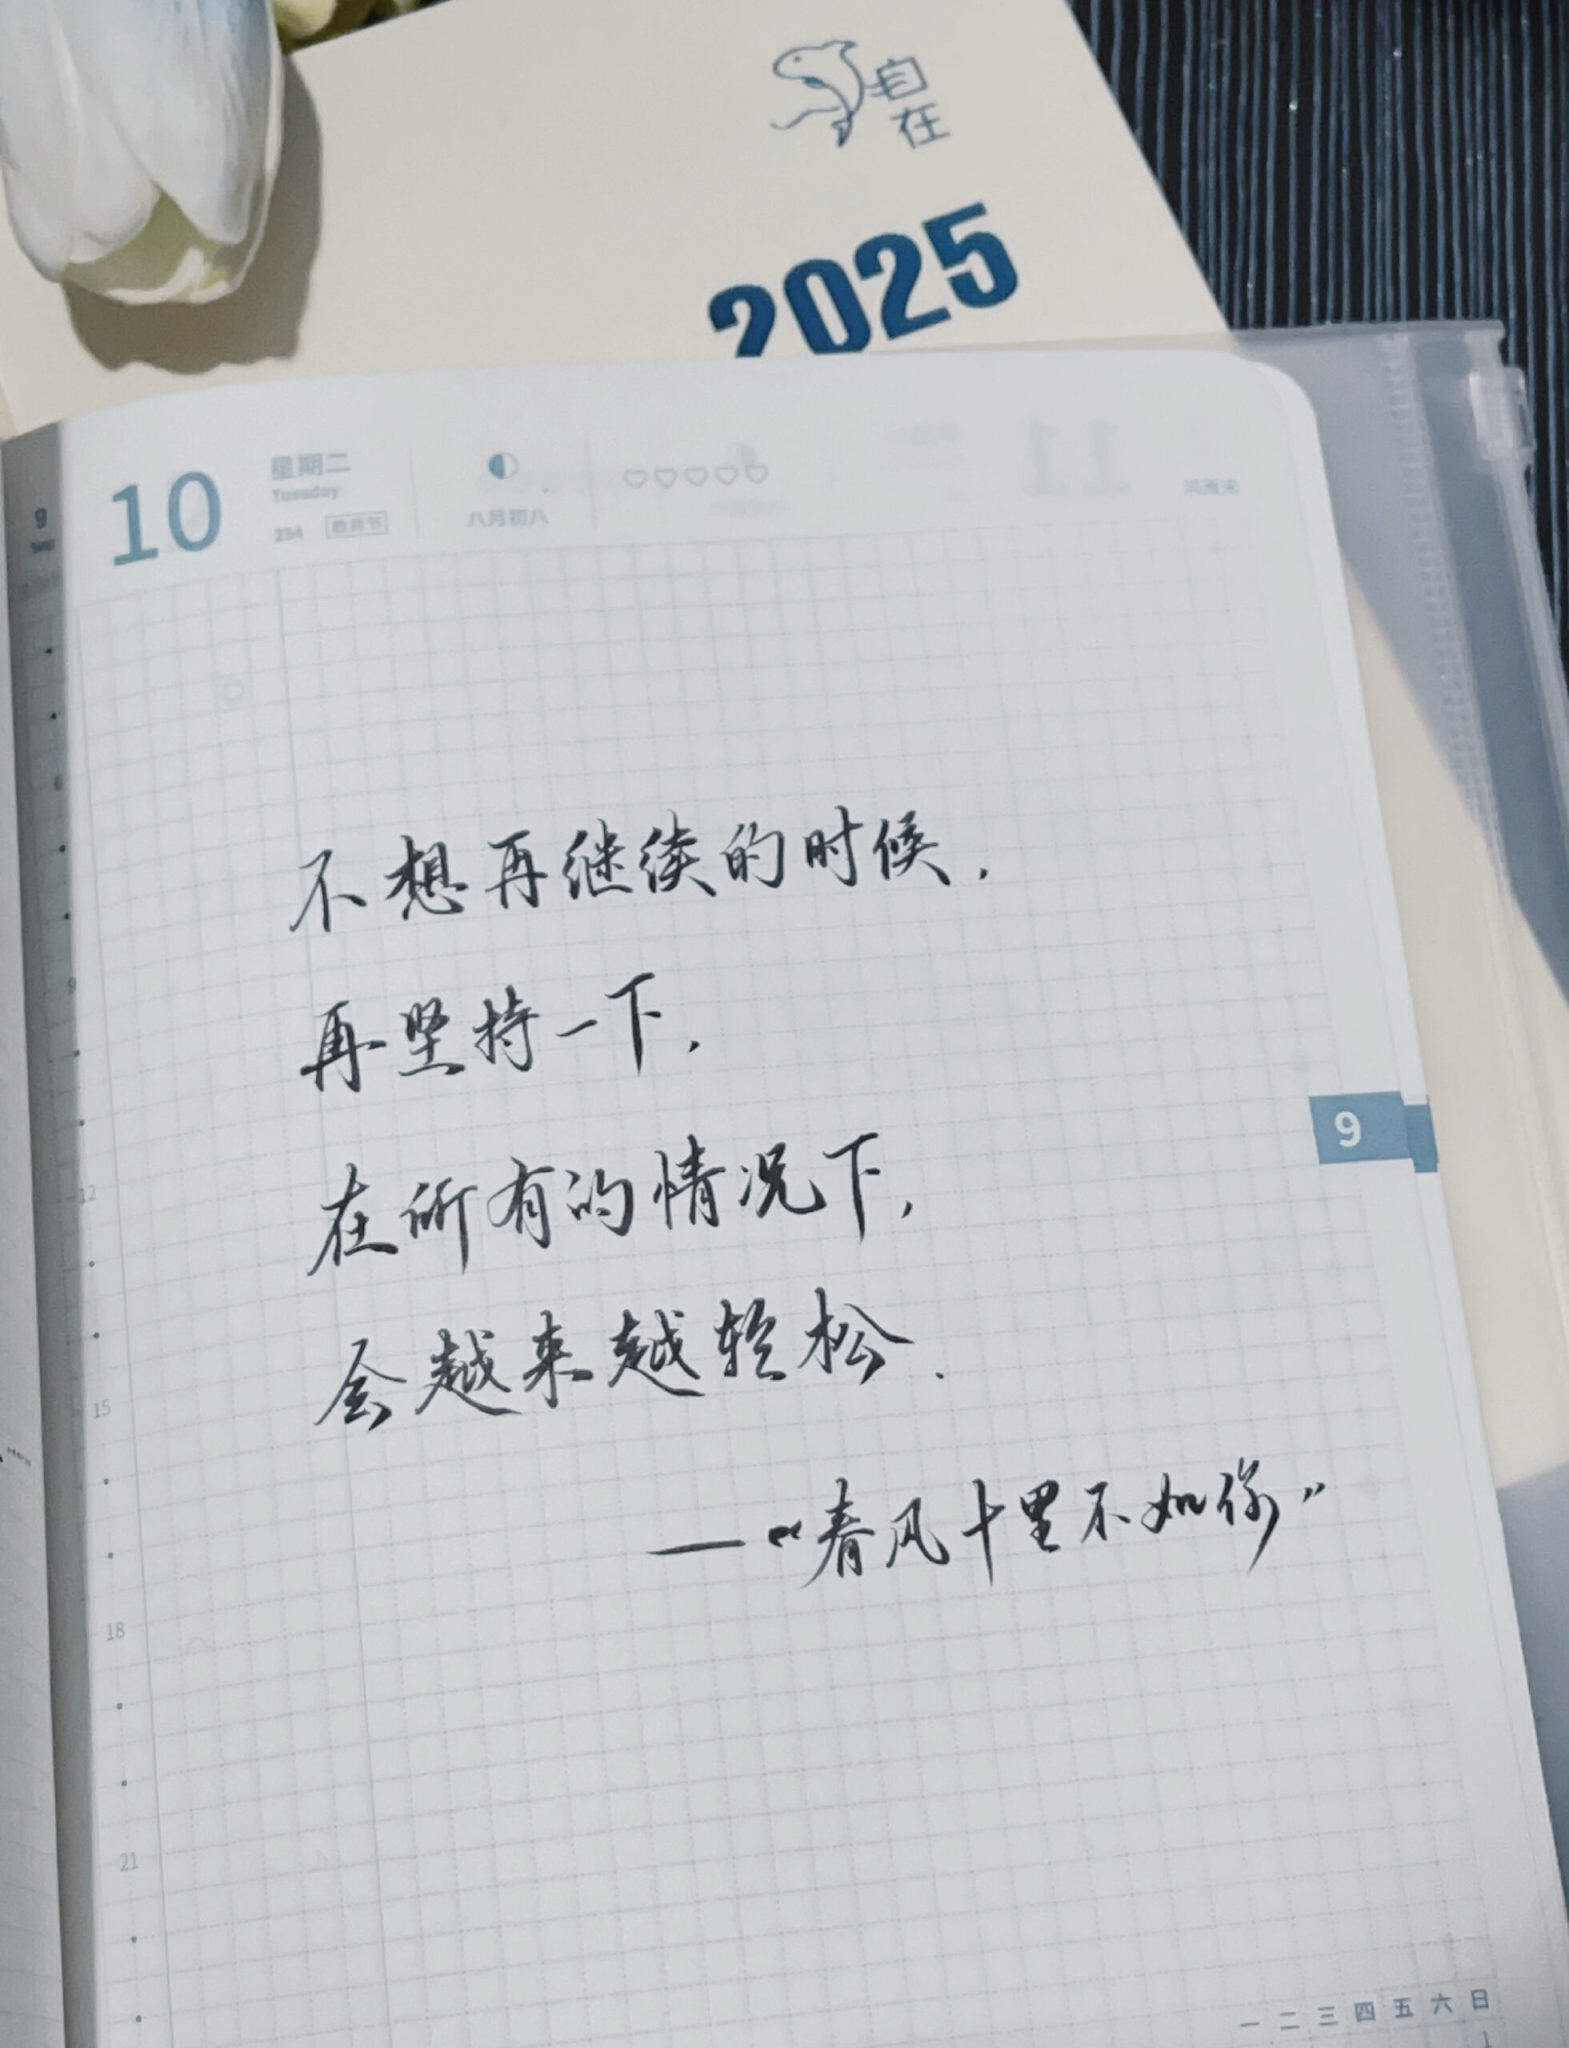 自在
2025
9
10
星期二
Tuesday
254 教师节
八月初八
鸿雁来
不想再继续的时候，
再坚持一下，
在所有的情况下，
会越来越轻松.
—“春风十里不如你”
9
6
9
12
15
18
21
一 二 三 四 五 六 日
1